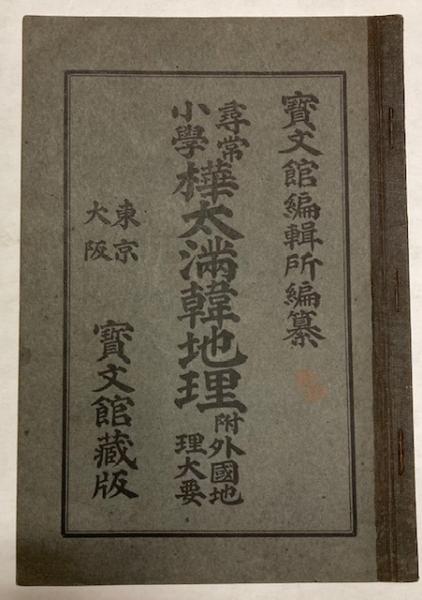 寶文館編輯所編纂
尋常
小學
樺太滿韓地理
附外國地
理大要
東京
大阪
寶文館藏版